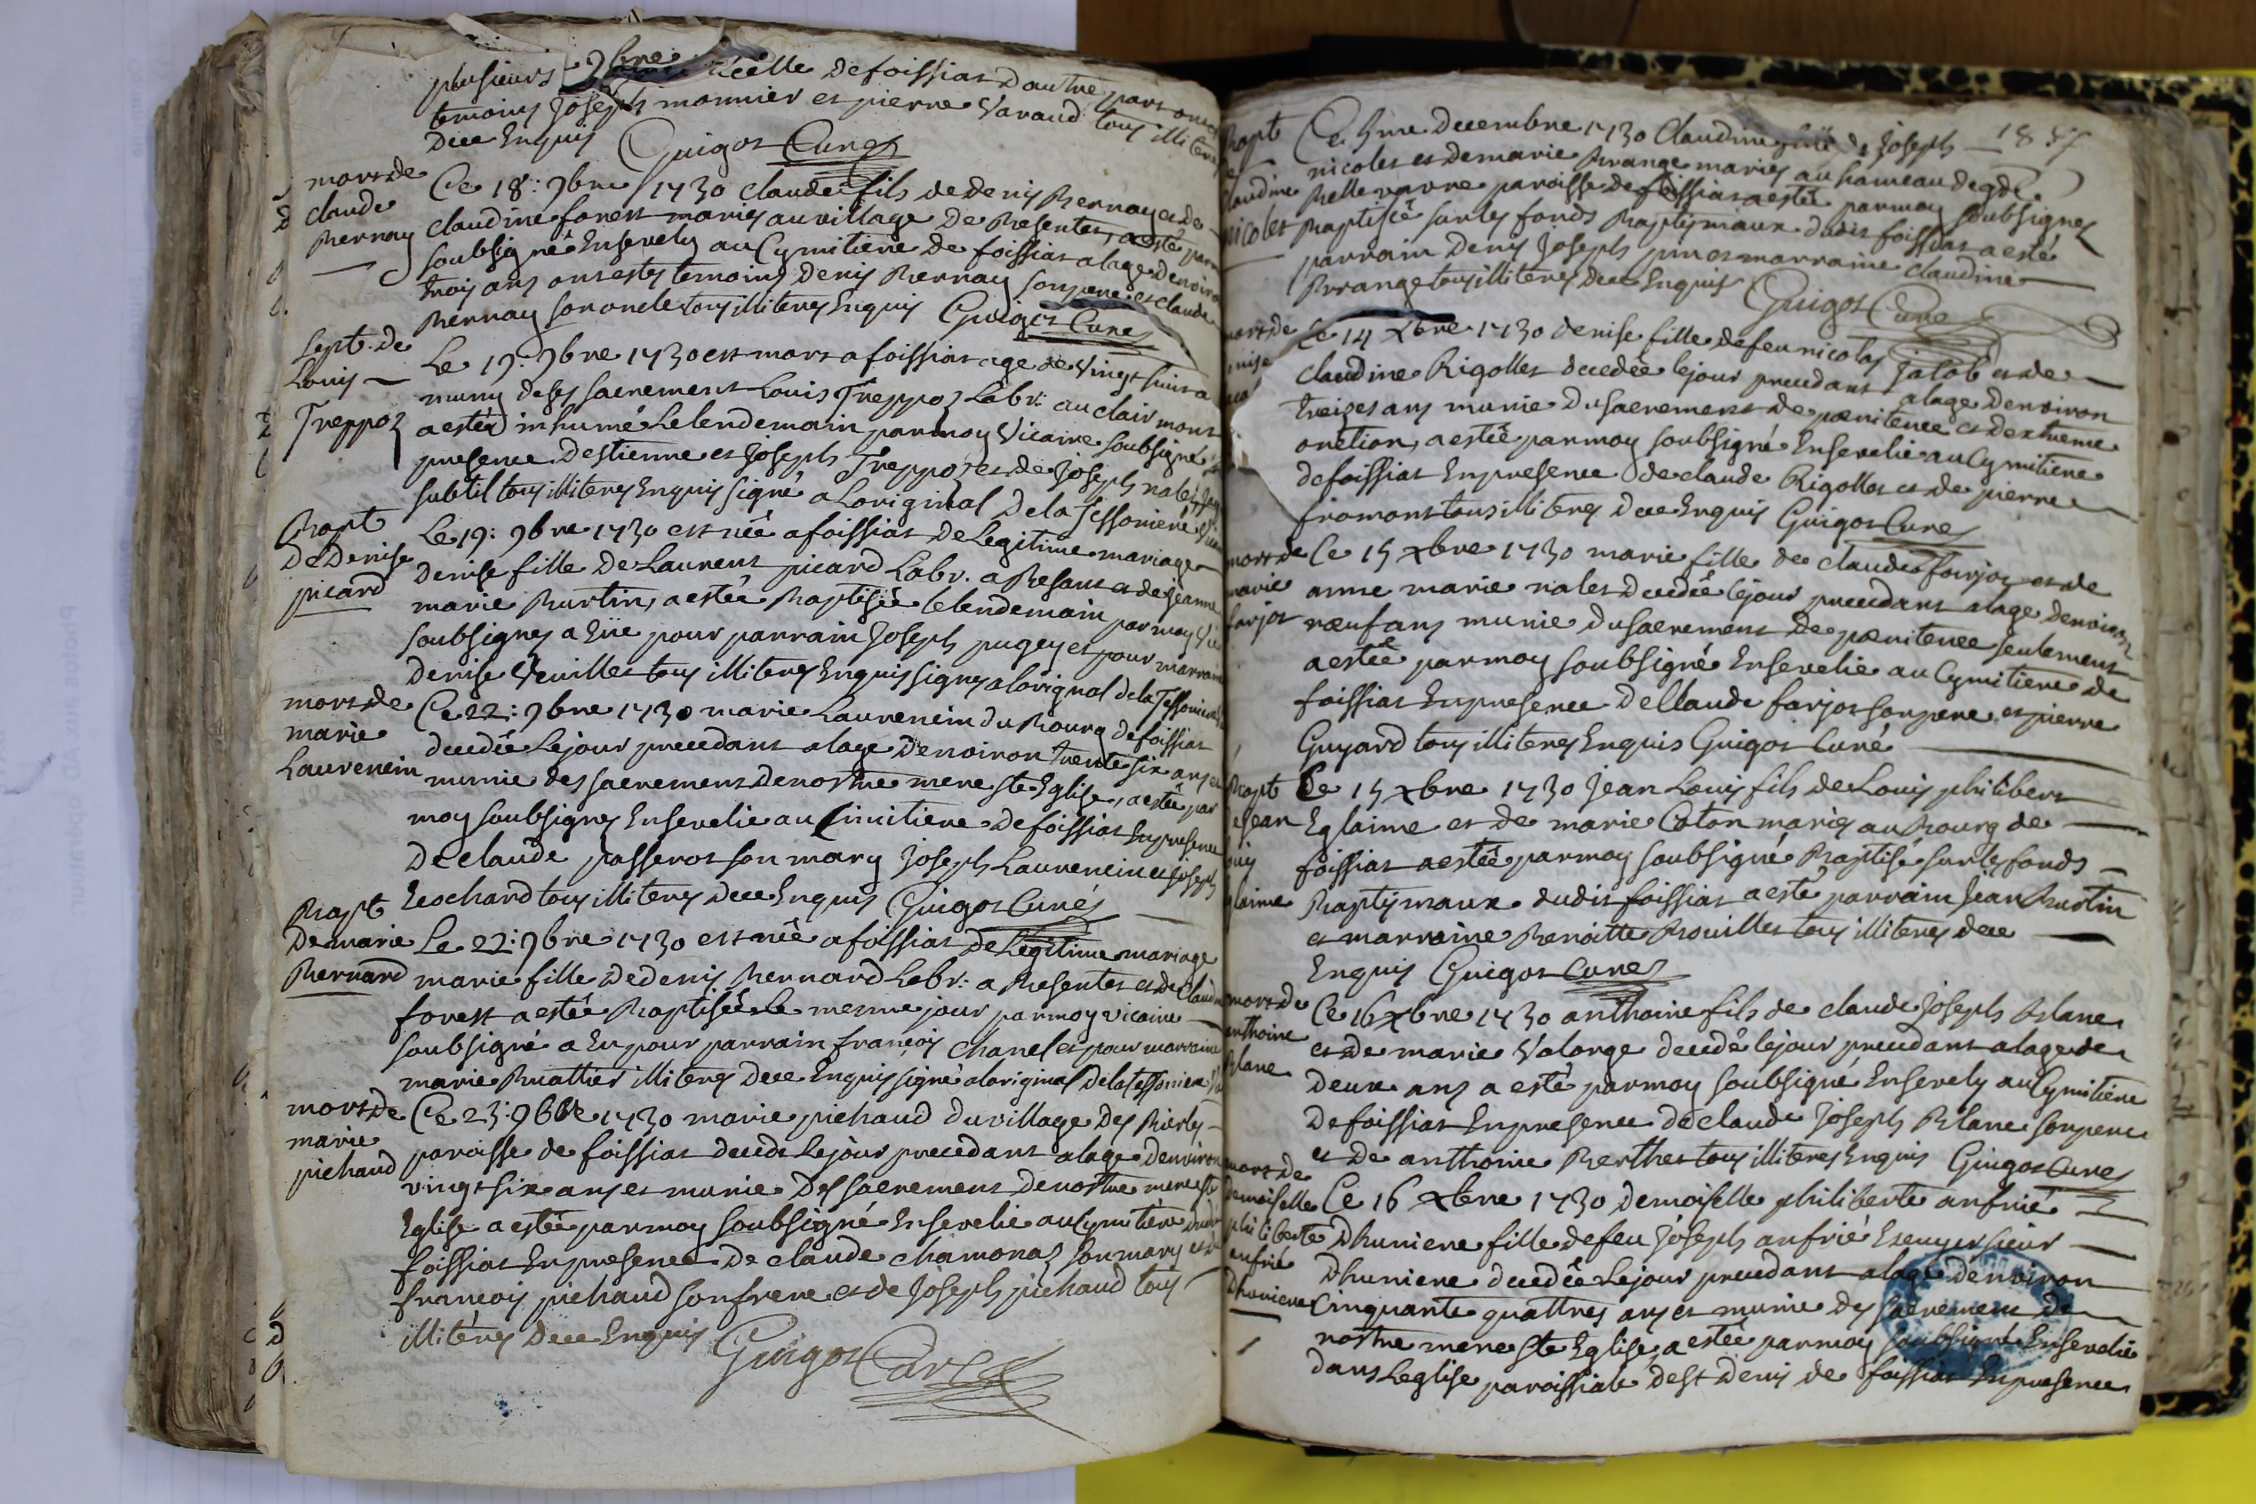 plusieurs 9bre icelle de foissiat d'autre part avec
temoins Joseph monnier et pierre Varaud tous illiteres
Dece Enquis Guigot Curé
mort de
claude
Bernay
Ce 18: 9bre 1730 claude fils de denis Bernay et de
claudine forest mariés au village De Besentet, a esté par moy
soubsigné Ensevely au Cymitiere de foissiat a lage denviron
trois ans ont estés temoins denis Bernay son pere et claude
Bernay son oncle tous illiteres Enquis Guigot Curé
Sept. de
Louis
Treppoz
Le 19: 9bre 1730 est mort a foissiat age de vingt huit a
muny de ses sacrement Louis Treppoz Labr. au clairmont
a esté inhumé le lendemain par moy Vicaire soubsigné
presence destienne et Joseph Treppoz et de Joseph nalet
subtil tous illiteres Enquis signé a Loriginal De la Tessoniere
Bapt
De Denise
picard
Le 19: 9bre 1730 est née a foissiat de Legitime mariage
Denise fille de Laurent picard Labr. a Besant et de jeanne
marie Burtin, a estée Baptisée le lendemain par moy
soubsignes a Eüe pour parrain Joseph pugey et pour marraine
denise Veuillet tous illiteres Enquis signes a lorignal de la Tessoniere
mort de
marie
Laurencin
Ce 22: 9bre 1730 marie Laurencin du Bourg de foissiat
decedée Le jour precedant a lage Denviron trente six ans et
munie des sacrement de nostre mere Ste Eglise, a estée par
moy soubsignes Ensevelie au Cimitiere de foissiat En presence
De claude passerot son mary Joseph Laurencin et Joseph
Eeochard tous illiteres Dece Enquis Guigot Curé
Bapt
De marie
Bernard
Le 22: 9bre 1730 est née a foissiat De Legitime mariage
marie fille de denis Bernard Labr: a Besentet et de Claudine
forest a estée Baptisée Le mesme jour par moy vicaire
soubsigné a Eu pour parrain francois chanel et pour marraine
marie Buattier illiteres Dece Enquis signé a loriginal De la Tessoniere
mort de
marie
pichaud
Ce 23: 9bre 1730 marie pichaud du village Des Bierles
paroisse de foissiat decede Le jour precedant a lage denviron
vingt six ans et munie Des sacrement de nostre mere Ste
Eglise a estée par moy soubsigné Ensevelie au Cymitiere dudit
foissiat En presence De claude chamonaz son mary et de
francois pichaud son frere et de Joseph pichaud tous
illiteres Dece Enquis Guigot Curé
Bapt
Claudine
nicolet
Ce 5me Decembre 1730 Claudine fille de Joseph
nicolet et de marie Brange mariés au hameau de
Bellevavre paroisse de foissiat a estée par moy soubsignes
Baptisée sur les fonds Baptismaux dudit foissiat a esté
parrain Denis Joseph et marraine claudine
Brange tous illiteres dece Enquis Guigot Curé
mort de
Ce 14 xbre 1730 denise fille de feu nicolas Jatob et de
claudine Rigollet decedée le jour precedant a lage denviron
treizes ans munie du sacrement de pœnitence et dextreme
onction, a estée par moy soubsigné Ensevelie au Cymitiere
de foissiat En presence de claude Rigollet et de pierre
fromont tous illiteres dece Enquis Guigot Curé
mort de
marie
farjot
Ce 15 xbre 1730 marie fille de claude farjot et de
anne marie nalet decedée le jour precedant a lage denviron
nœuf ans munie du sacrement de pœnitence seulement
a estée par moy soubsigné Ensevelie au Cymitiere de
foissiat En presence De Claude farjot son pere et pierre
Guyard tous illiteres Enquis Guigot Curé
Bapt
Jean
Ce 15 xbre 1730 Jean Louis fils de Louis philibert
Eglaine et de marie Caton mariés au Bourg de
foissiat a estée par moy soubsigné Baptisé sur les fonds
Baptismaux dudit foissiat a esté parrain Jean Burtin
et marraine Benoitte Bouillet tous illiteres dece
Enquis Guigot Curé
mort de
anthoine
Blanc
Ce 16 xbre 1730 anthoine fils de claude Joseph Blanc
et de marie Valorge decedé le jour precedant a lage de
Deux ans a esté par moy soubsigné Ensevely au Cymitiere
De foissiat En presence de claude Joseph Blanc son pere
et De anthoine Berthet tous illiteres Enquis Guigot Curé
mort de
demoiselle
philiberte
anfrié
Dhuniere
Ce 16 xbre 1730 demoiselle philiberte anfrié
Dhuniere fille de feu Joseph anfrié Escuyer sieur
Dhuniere decedée Le jour precedant a lage denviron
Cinquante quattres ans et munie des sacrement de
nostre mere Ste Eglise, a estée par moy soubsigné Ensevelie
dans Leglise paroissiale de St Denis de foissiat En presence